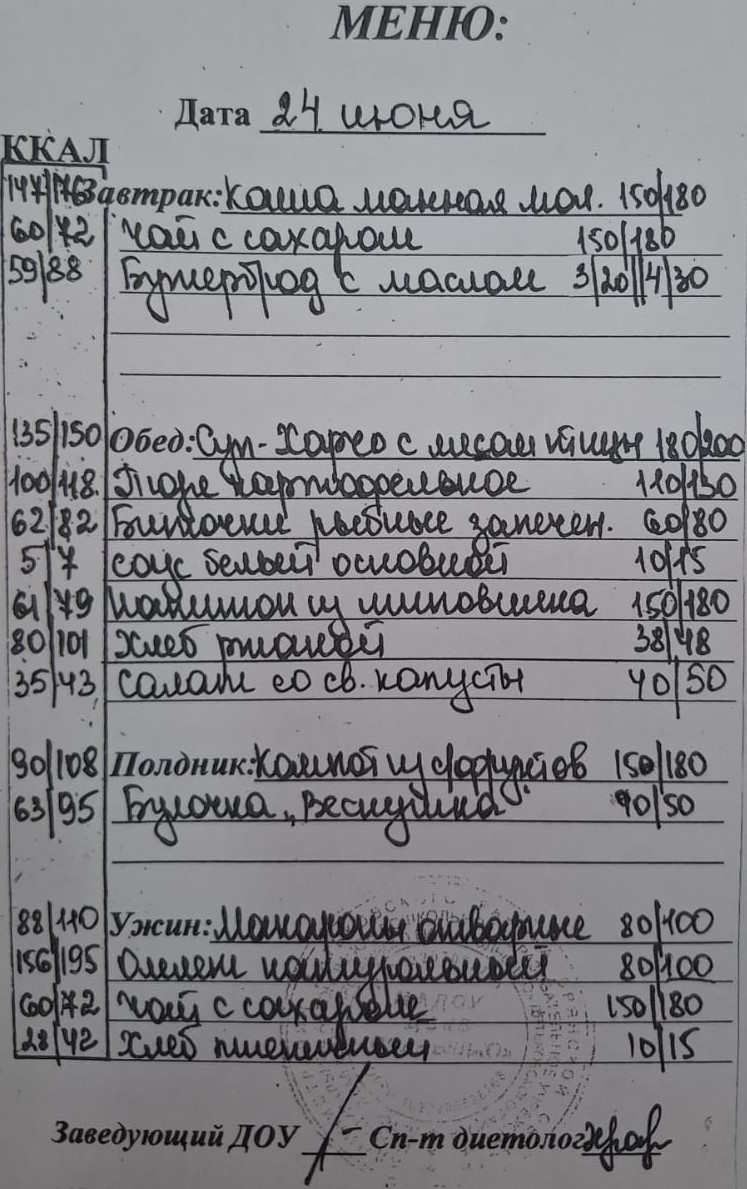 МЕНЮ:
Дата 24 июня
ККАЛ
147|176 Завтрак: Каша манная мол. 150|180
60|72 Чай с сахаром 150|180
59|88 Бутерброд с маслом 3|20||4|30
135|150 Обед: Суп-Харчо с мясом птицы 180|200
100|118 Пюре картофельное 110|130
62|82 Биточки рыбные запечен. 60|80
5|7 соус белый основной 10|15
61|79 напиток из шиповника 150|180
80|101 Хлеб ржаной 38|48
35|43 салат со св. капусты 40|50
90|108 Полдник: Компот из с/фруктов 150|180
63|95 Булочка „Веснушка" 40|50
88|110 Ужин: Макароны отварные 80|100
156|195 Омлет натуральный 80|100
60|72 Чай с сахаром 150|180
28|42 Хлеб пшеничный 10|15
Заведующий ДОУ Сп-т диетолог